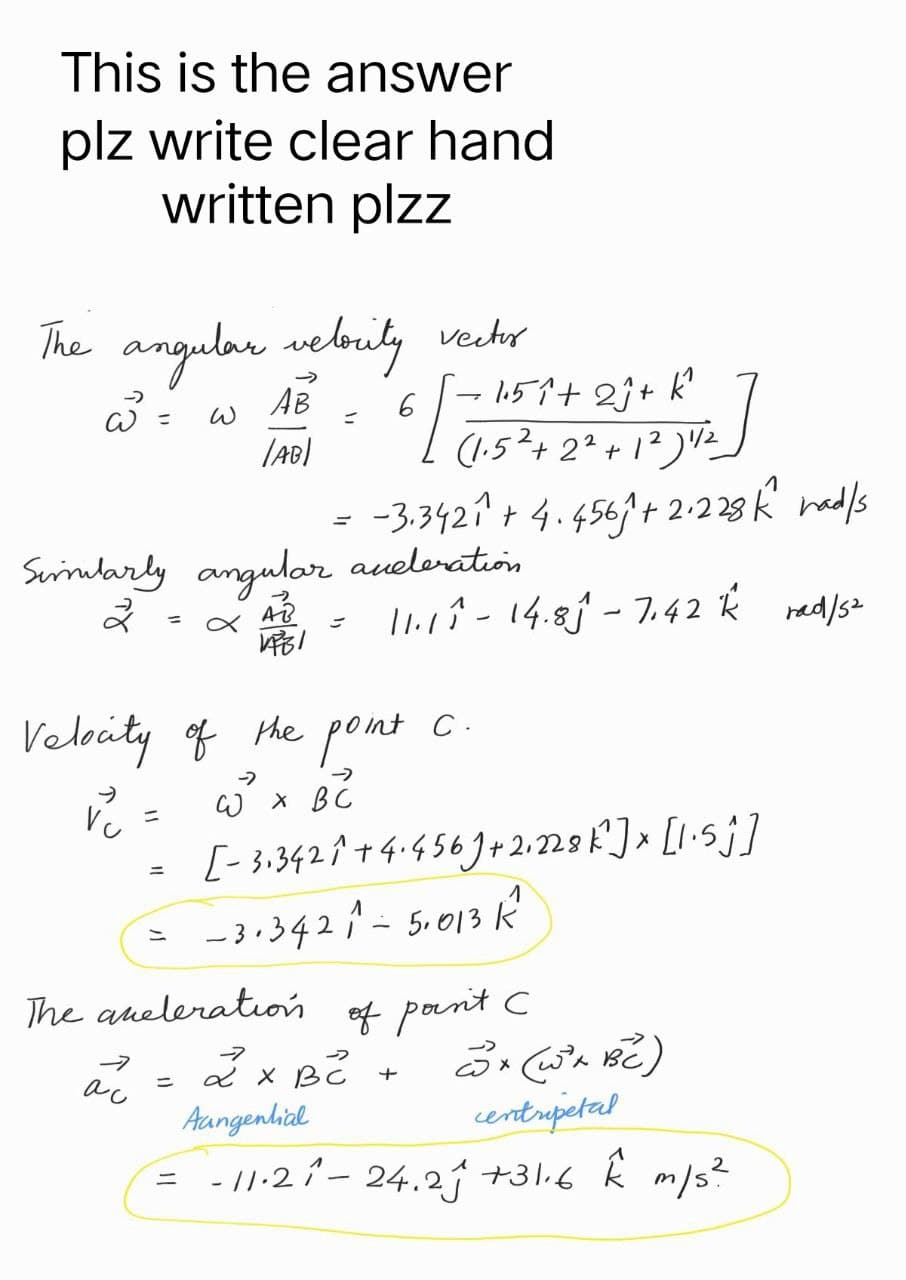 This is the answer
plz write clear hand
written plzz
The angular velocity vector
ω⃗ = ω AB⃗ / |AB| = 6 [ (-1.5î + 2ĵ + k̂) / (1.5² + 2² + 1²)^1/2 ]
= -3.342î + 4.456ĵ + 2.228k̂ rad/s
Similarly angular acceleration
α⃗ = α AB⃗ / |AB| = 11.1î - 14.8ĵ - 7.42 k̂ rad/s²
Velocity of the point C.
V⃗c = ω⃗ × BC⃗
= [-3.342î + 4.456ĵ + 2.228k̂] × [1.5ĵ]
= -3.342î - 5.013 k̂
The acceleration of point C
a⃗c = α⃗ × BC⃗ + ω⃗ × (ω⃗ × BC⃗)
Aangential centripetal
= -11.2î - 24.2ĵ + 31.6 k̂ m/s²